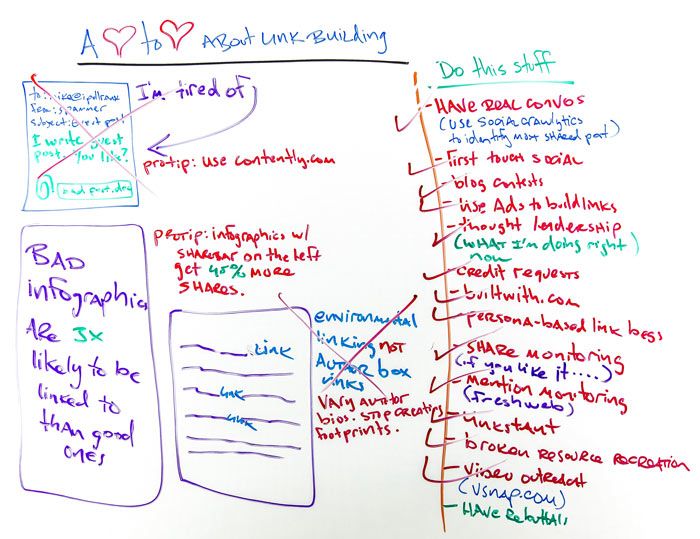 A ♡ to ♡ About Link Building
to: mike@ipullrank
from: spammer
subject: guest post
I write guest
post. You like?
bad post.doc
I'm tired of
protip: use contently.com
BAD
infographics
Are 3x
likely to be
linked to
than good
ones
protip: infographics w/
sharebar on the left
get 45% more
shares.
Link
Link
Link
environmental
linking not
Author box
links
Vary author
bios. Stop creating
footprints.
Do this stuff
- Have real convos
(use social crawlytics
to identify most shared post)
- First touch social
- blog contests
- Use Ads to build links
- thought leadership
(what I'm doing right)
now
- credit requests
- builtwith.com
- persona-based link begs
- Share monitoring
(if you like it....)
- Mention monitoring
(freshweb)
- Linkstant
- broken resource recreation
- video outreach
(vsnap.com)
- Have rebuttals